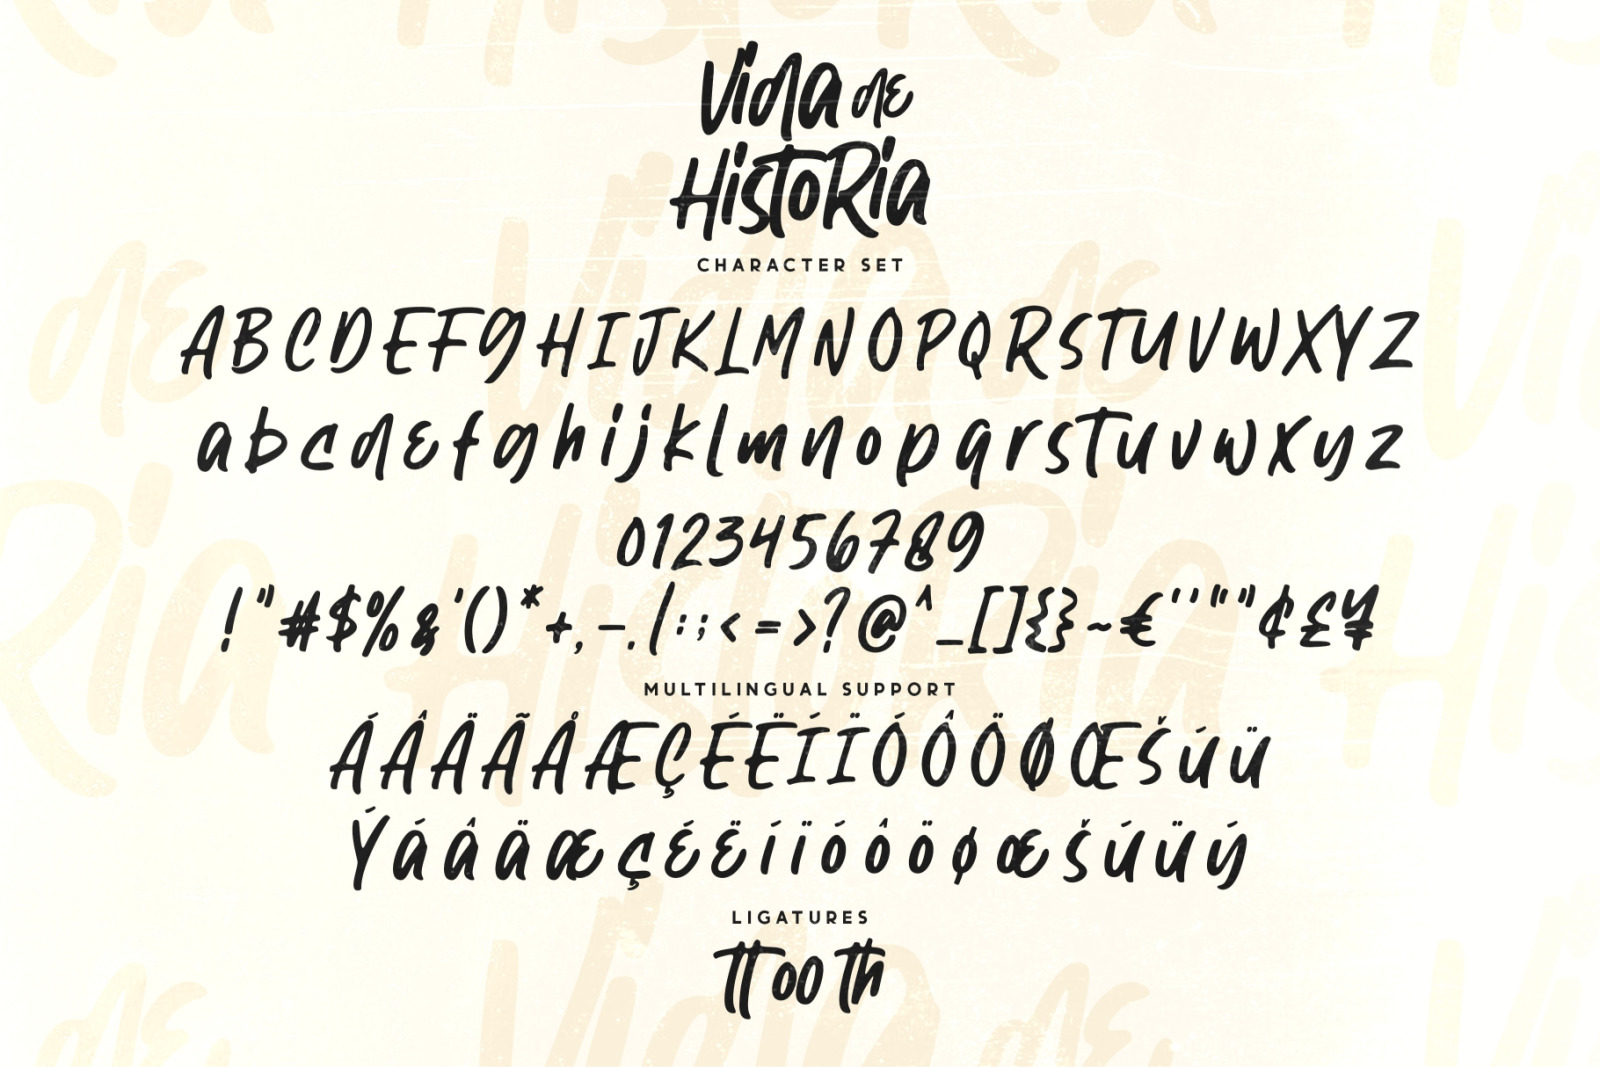 Vida de
Historia
CHARACTER SET
ABCDEFGHIJKLMNOPQRSTUVWXYZ
abcdefghijklmnopqrstuvwxyz
0123456789
!"#$%&'()*+,-./:;<=>?@^_[]{}~€‘’“”¢£¥
MULTILINGUAL SUPPORT
ÁÂÄÃÅÆÇÉËÍÏÓÔÖØŒŠÚÜ
Ýáâäæçéëíïóôöøœšúüý
LIGATURES
tt oo th